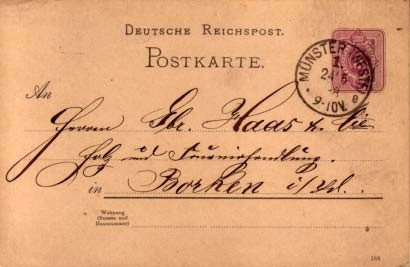 DEUTSCHE REICHSPOST.
POSTKARTE.
MÜNSTER WESTF.
1.
24/5
9-10V.
An
Herren Gb. Haas & Cie
Holz und Fournierhandlung.
in Borken i/W.
Wohnung
(Strasse und
Hausnummer)
188